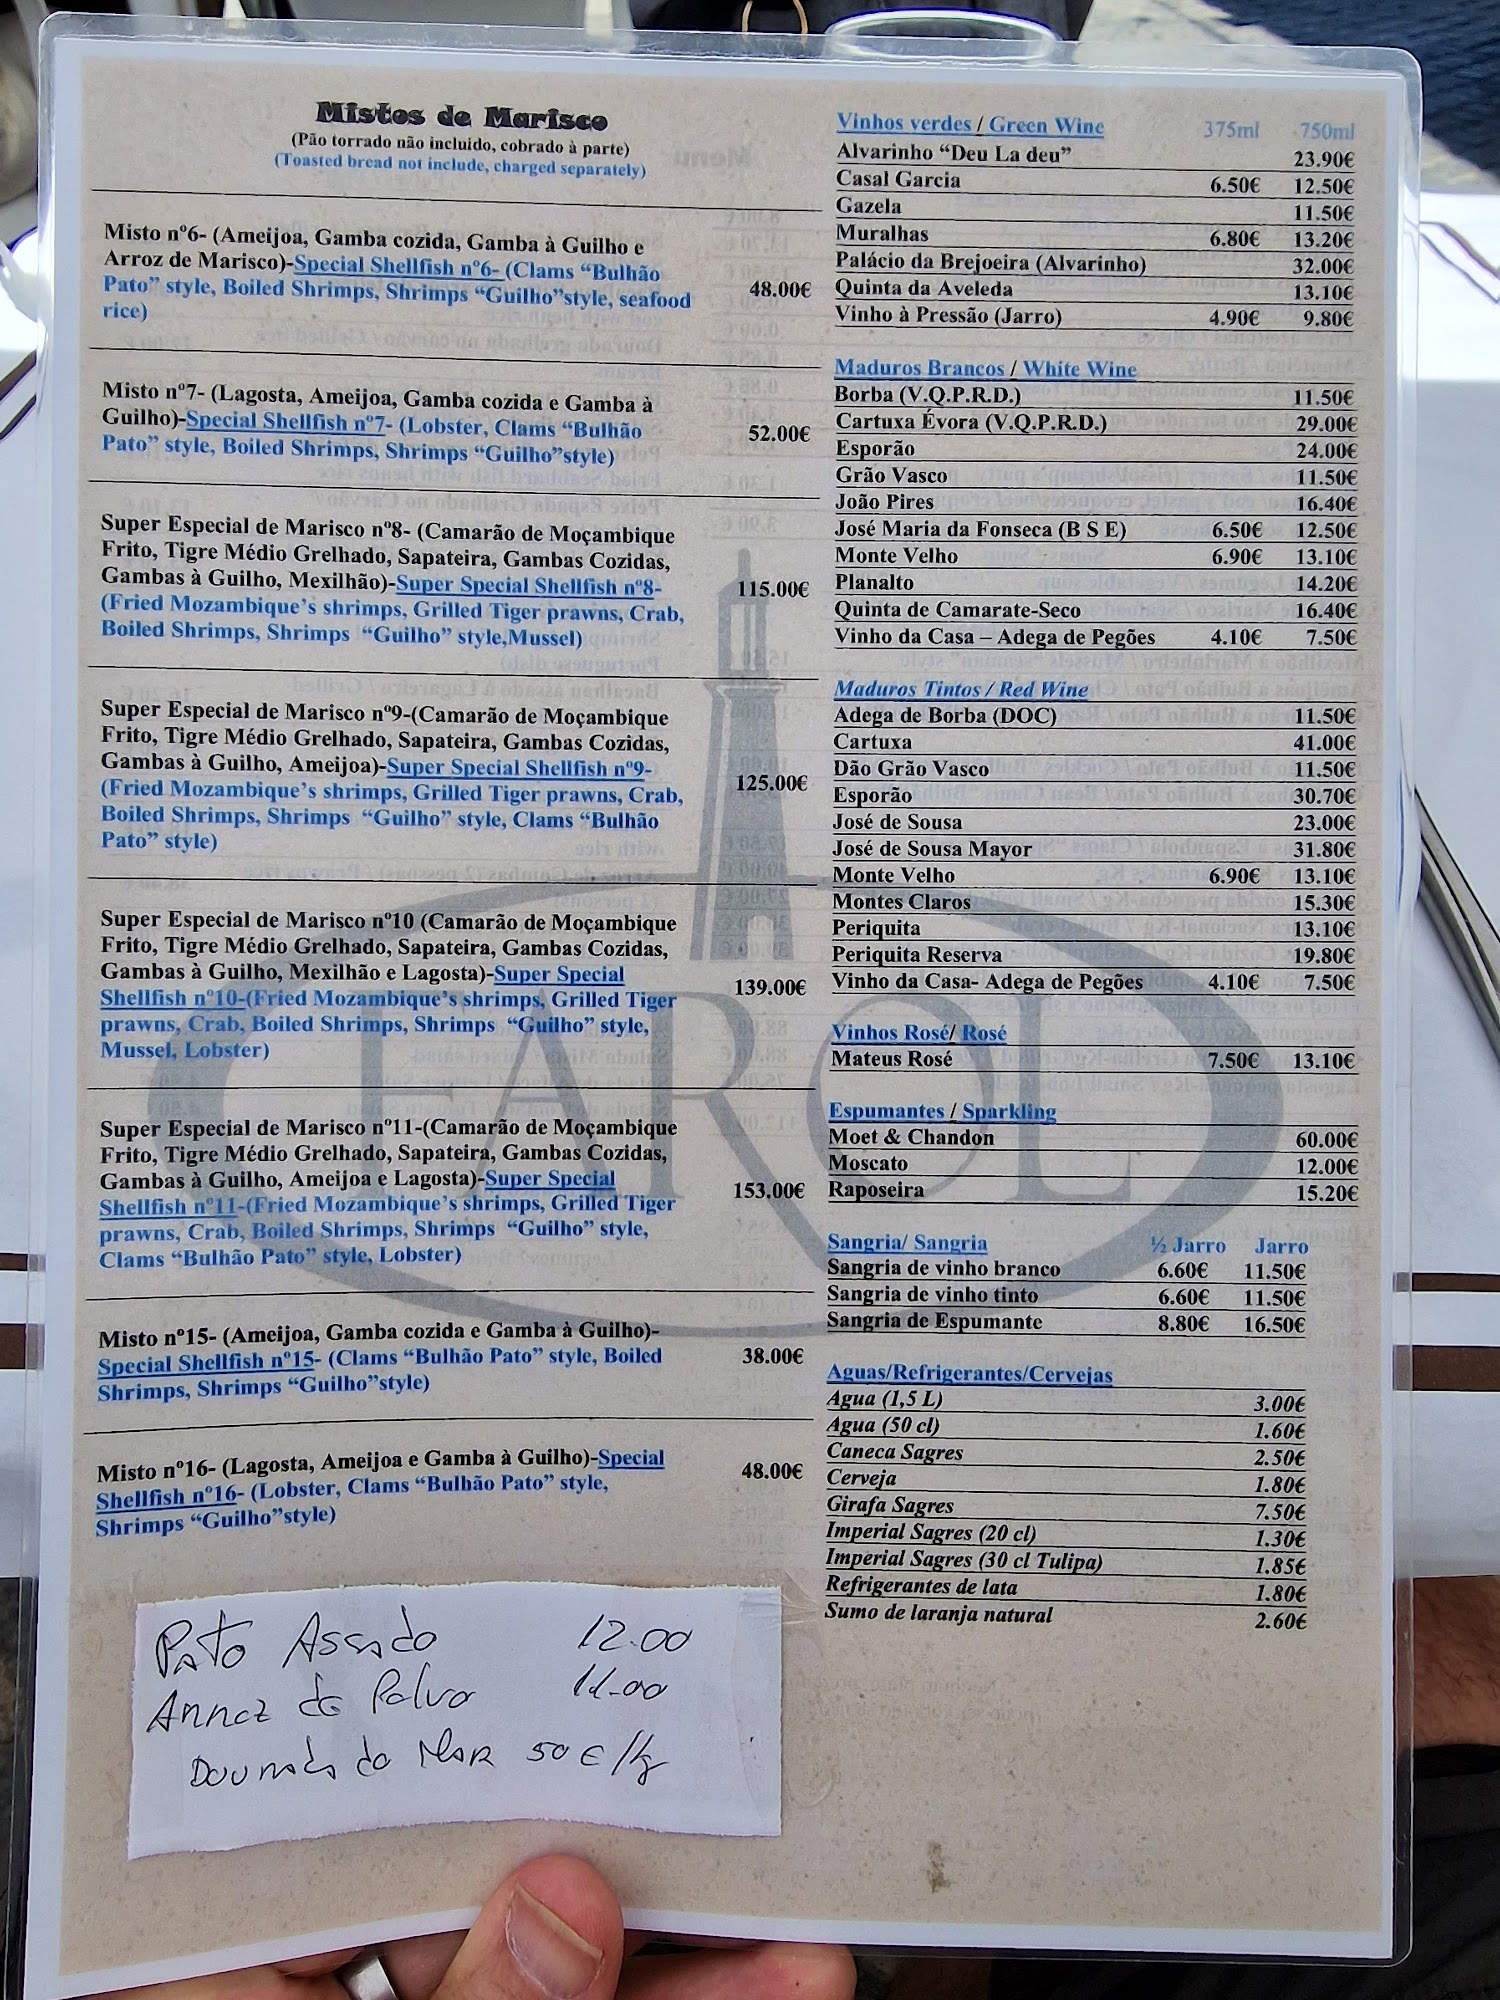 Mistos de Marisco
(Pão torrado não incluído, cobrado à parte)
(Toasted bread not include, charged separately)
Misto nº6- (Ameijoa, Gamba cozida, Gamba à Guilho e
Arroz de Marisco)-Special Shellfish nº6- (Clams “Bulhão
Pato” style, Boiled Shrimps, Shrimps “Guilho”style, seafood
rice)
48.00€
Misto nº7- (Lagosta, Ameijoa, Gamba cozida e Gamba à
Guilho)-Special Shellfish nº7- (Lobster, Clams “Bulhão
Pato” style, Boiled Shrimps, Shrimps “Guilho”style)
52.00€
Super Especial de Marisco nº8- (Camarão de Moçambique
Frito, Tigre Médio Grelhado, Sapateira, Gambas Cozidas,
Gambas à Guilho, Mexilhão)-Super Special Shellfish nº8-
(Fried Mozambique’s shrimps, Grilled Tiger prawns, Crab,
Boiled Shrimps, Shrimps “Guilho” style,Mussel)
115.00€
Super Especial de Marisco nº9-(Camarão de Moçambique
Frito, Tigre Médio Grelhado, Sapateira, Gambas Cozidas,
Gambas à Guilho, Ameijoa)-Super Special Shellfish nº9-
(Fried Mozambique’s shrimps, Grilled Tiger prawns, Crab,
Boiled Shrimps, Shrimps “Guilho” style, Clams “Bulhão
Pato” style)
125.00€
Super Especial de Marisco nº10 (Camarão de Moçambique
Frito, Tigre Médio Grelhado, Sapateira, Gambas Cozidas,
Gambas à Guilho, Mexilhão e Lagosta)-Super Special
Shellfish nº10-(Fried Mozambique’s shrimps, Grilled Tiger
prawns, Crab, Boiled Shrimps, Shrimps “Guilho” style,
Mussel, Lobster)
139.00€
Super Especial de Marisco nº11-(Camarão de Moçambique
Frito, Tigre Médio Grelhado, Sapateira, Gambas Cozidas,
Gambas à Guilho, Ameijoa e Lagosta)-Super Special
Shellfish nº11-(Fried Mozambique’s shrimps, Grilled Tiger
prawns, Crab, Boiled Shrimps, Shrimps “Guilho” style,
Clams “Bulhão Pato” style, Lobster)
153.00€
Misto nº15- (Ameijoa, Gamba cozida e Gamba à Guilho)-
Special Shellfish nº15- (Clams “Bulhão Pato” style, Boiled
Shrimps, Shrimps “Guilho”style)
38.00€
Misto nº16- (Lagosta, Ameijoa e Gamba à Guilho)-Special
Shellfish nº16- (Lobster, Clams “Bulhão Pato” style,
Shrimps “Guilho”style)
48.00€
Pato Assado 12.00
Arroz de Polvo 11.00
Dourada do Mar 50€/kg
FAROL
Vinhos verdes / Green Wine 375ml 750ml
Alvarinho “Deu La deu” 23.90€
Casal Garcia 6.50€ 12.50€
Gazela 11.50€
Muralhas 6.80€ 13.20€
Palácio da Brejoeira (Alvarinho) 32.00€
Quinta da Aveleda 13.10€
Vinho à Pressão (Jarro) 4.90€ 9.80€
Maduros Brancos / White Wine
Borba (V.Q.P.R.D.) 11.50€
Cartuxa Évora (V.Q.P.R.D.) 29.00€
Esporão 24.00€
Grão Vasco 11.50€
João Pires 16.40€
José Maria da Fonseca (B S E) 6.50€ 12.50€
Monte Velho 6.90€ 13.10€
Planalto 14.20€
Quinta de Camarate-Seco 16.40€
Vinho da Casa – Adega de Pegões 4.10€ 7.50€
Maduros Tintos / Red Wine
Adega de Borba (DOC) 11.50€
Cartuxa 41.00€
Dão Grão Vasco 11.50€
Esporão 30.70€
José de Sousa 23.00€
José de Sousa Mayor 31.80€
Monte Velho 6.90€ 13.10€
Montes Claros 15.30€
Periquita 13.10€
Periquita Reserva 19.80€
Vinho da Casa- Adega de Pegões 4.10€ 7.50€
Vinhos Rosé/ Rosé
Mateus Rosé 7.50€ 13.10€
Espumantes / Sparkling
Moet & Chandon 60.00€
Moscato 12.00€
Raposeira 15.20€
Sangria/ Sangria ½ Jarro Jarro
Sangria de vinho branco 6.60€ 11.50€
Sangria de vinho tinto 6.60€ 11.50€
Sangria de Espumante 8.80€ 16.50€
Aguas/Refrigerantes/Cervejas
Agua (1,5 L) 3.00€
Agua (50 cl) 1.60€
Caneca Sagres 2.50€
Cerveja 1.80€
Girafa Sagres 7.50€
Imperial Sagres (20 cl) 1.30€
Imperial Sagres (30 cl Tulipa) 1.85€
Refrigerantes de lata 1.80€
Sumo de laranja natural 2.60€